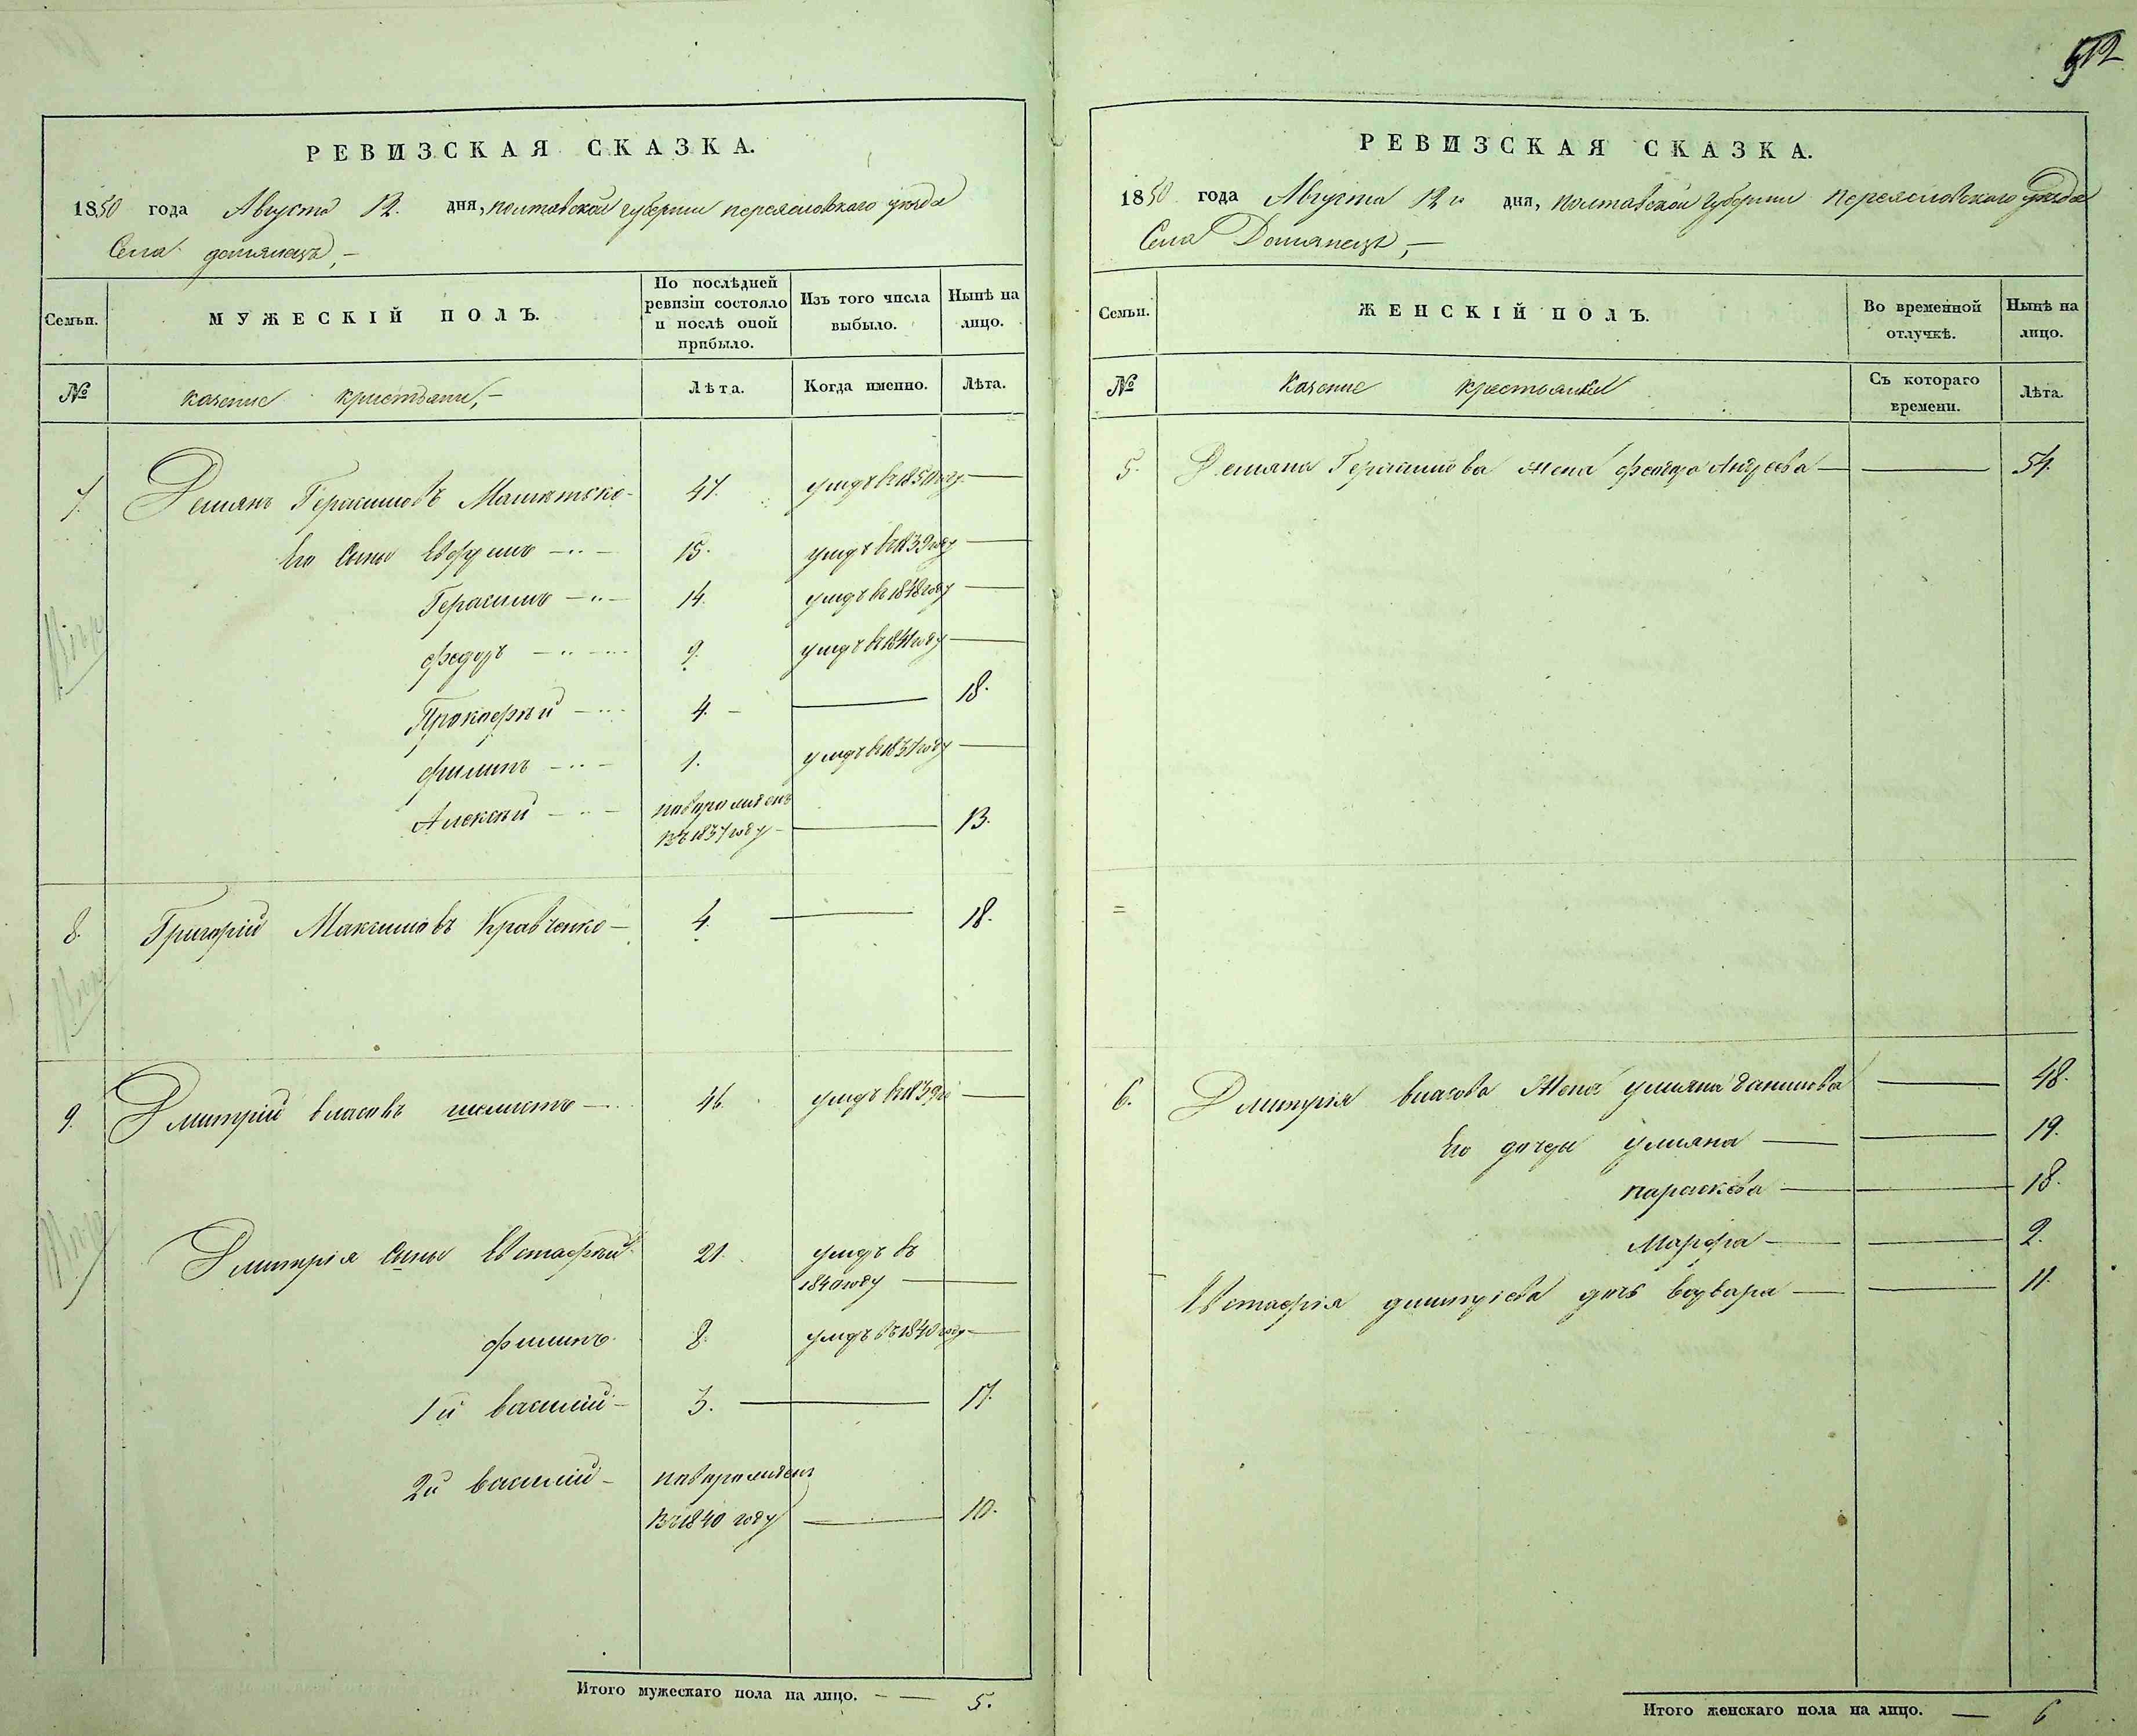 512
РЕВИЗСКАЯ СКАЗКА.
1850 года Августа 12. дня, полтавской губернии переясловского уезда
Села
Семьи.
МУЖЕСКІЙ ПОЛЪ.
По послѣдней ревизіи состояло и послѣ оной прибыло.
Изъ того числа выбыло.
Нынѣ на лицо.
№
казение крестьяни,-
Лѣта.
Когда именно.
Лѣта.
7. Демянъ Герасимовъ 47. умръ въ 1850 году —
Его Сыны 15. умръ в 1839 году —
Герасимъ 14. умръ в 1848 году —
федоръ 9. умръ в 1841 году —
Прокофѣй 4. — 18.
филипъ 1. умръ в 1837 году —
Алексѣй новорожденъ
въ 1837 году — 13.
8. Григорій Максимовъ Кравченко — 4. — 18.
9. Дмитрій власовъ 46. умръ в 1839 —
Дмитрія Сыны Евстафѣй 21. умръ въ
1840 году —
филипъ 8. умръ въ 1840 году —
1й василій — 3. — 17.
2й василій — новорожденъ
въ 1840 году — 10.
Итого мужескаго пола на лицо. — — 5.
РЕВИЗСКАЯ СКАЗКА.
1850 года Августа 12 го дня, полтавской губернии переясловского уезда
Села
Семьи.
ЖЕНСКІЙ ПОЛЪ.
Во временной отлучкѣ.
Нынѣ на лицо.
№
Казение крестьянки
Съ котораго времени.
Лѣта.
5. Демяна Герасимова жена Андреева — — 54.
6. Дмитрія власова жена улияна Данилова — 48.
Его дочери улияна — — 19.
параскева — — 18.
Марфа — — 2.
Евстафія дмитріева дочь варвара — — 11.
Итого женскаго пола на лицо. — 6